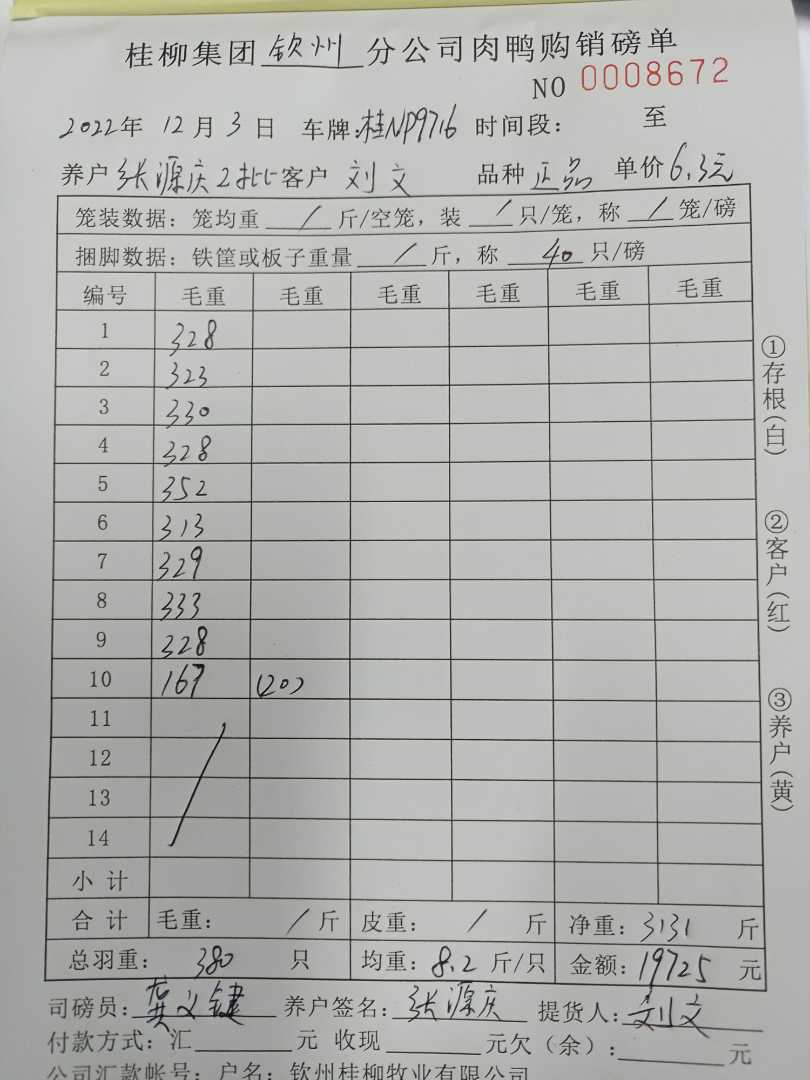 桂柳集团 钦州 分公司肉鸭购销磅单
NO 0008672
2022年 12月 3日 车牌:桂NP9716 时间段: 至
养户 张源庆2批 客户 刘文 品种 正品 单价 6.3元
笼装数据: 笼均重 / 斤/空笼, 装 / 只/笼, 称 / 笼/磅
捆脚数据: 铁筐或板子重量 / 斤, 称 40 只/磅
编号 毛重 毛重 毛重 毛重 毛重 毛重
1 328
2 323
3 330
4 328
5 352
6 313
7 329
8 333
9 328
10 167 (20)
11
12
13
14
小计
合计 毛重: / 斤 皮重: / 斤 净重: 3131 斤
总羽重: 380 只 均重: 8.2 斤/只 金额: 19725 元
司磅员: 龚义键 养户签名: 张源庆 提货人: 刘文
付款方式: 汇 元 收现 元欠(余): 元
公司汇款帐号: 户名: 钦州桂柳牧业有限公司
①存根(白)
②客户(红)
③养户(黄)